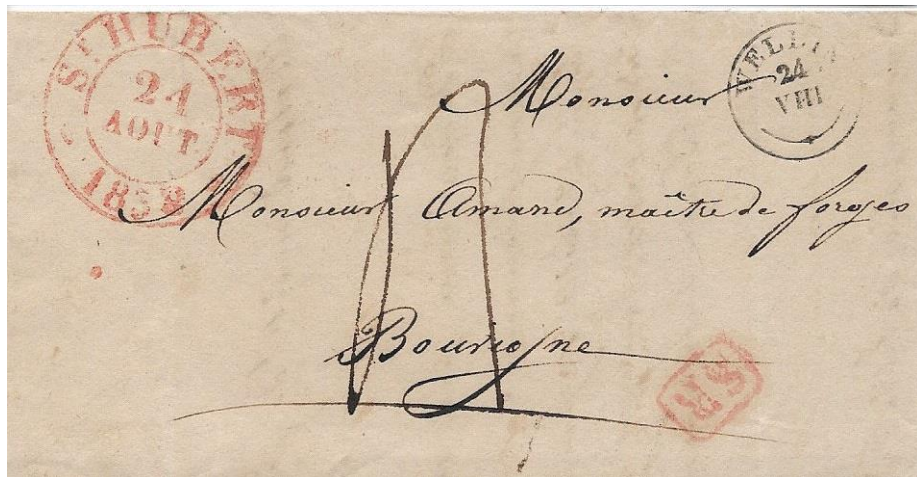 ST HUBERT
24
AOUT
WELLIN
24
VIII
Monsieur
Monsieur Amand, maître de forges
Bouvigne
SR